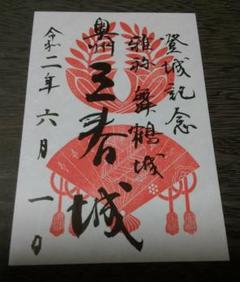 登城記念
雅称 舞鶴城
奥州 三春城
令和二年六月一日